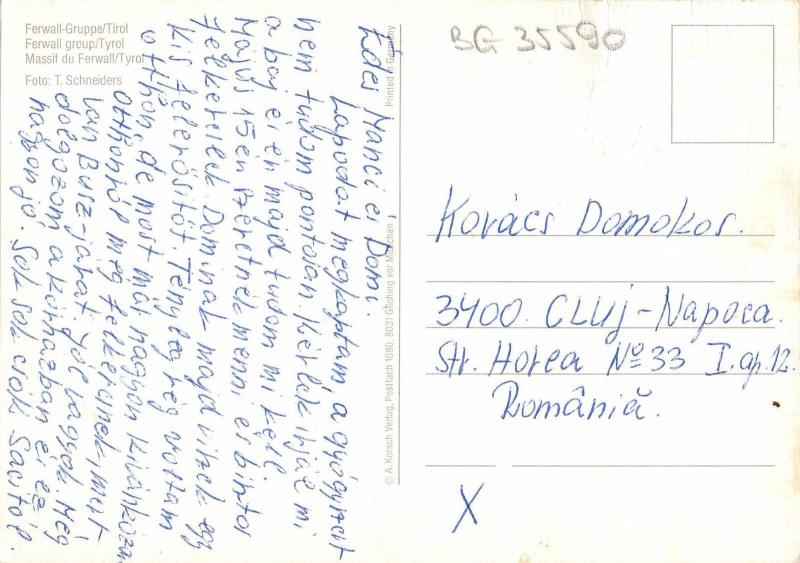 Ferwall-Gruppe/Tirol
Ferwall group/Tyrol
Massif du Ferwall/Tyrol
Foto: T. Schneiders
BG 35590
Printed in Germany
© A. Korsch Verlag, Postfach 1080, 8031 Gilching vor München
Édes Manci é Domi.
Lapodat megkaptam, a gyógyszert
nem tudom pontosan. Kérlek írjál mi
a baj és én majd tudom mi kell.
Május 15 én szeretnék menni és biztos
felkereslek. Dominak majd viszek egy
kis felerősítőt. Tényleg rég voltam
otthon, de most már nagyon kivánkozom
otthonról meg felkeresnek mert
van Busz-járat. Jól vagyok. Még
dolgozom a kórházban és ez
nagyon jó. Sok sok csók Sacitól.
Kovács Domokos.
3400. CLUJ-Napoca.
Str. Horea No 33 I. ap. 12.
România.
X